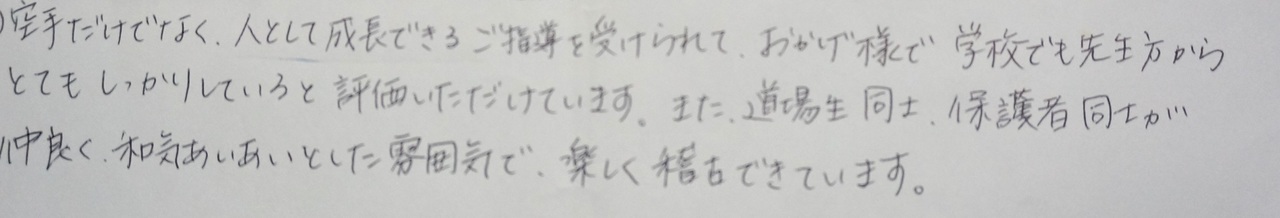 空手だけでなく、人として成長できるご指導を受けられて、おかげ様で学校でも先生方から
とてもしっかりしていると評価いただけています。また、道場生同士、保護者同士が
仲良く、和気あいあいとした雰囲気で、楽しく稽古できています。